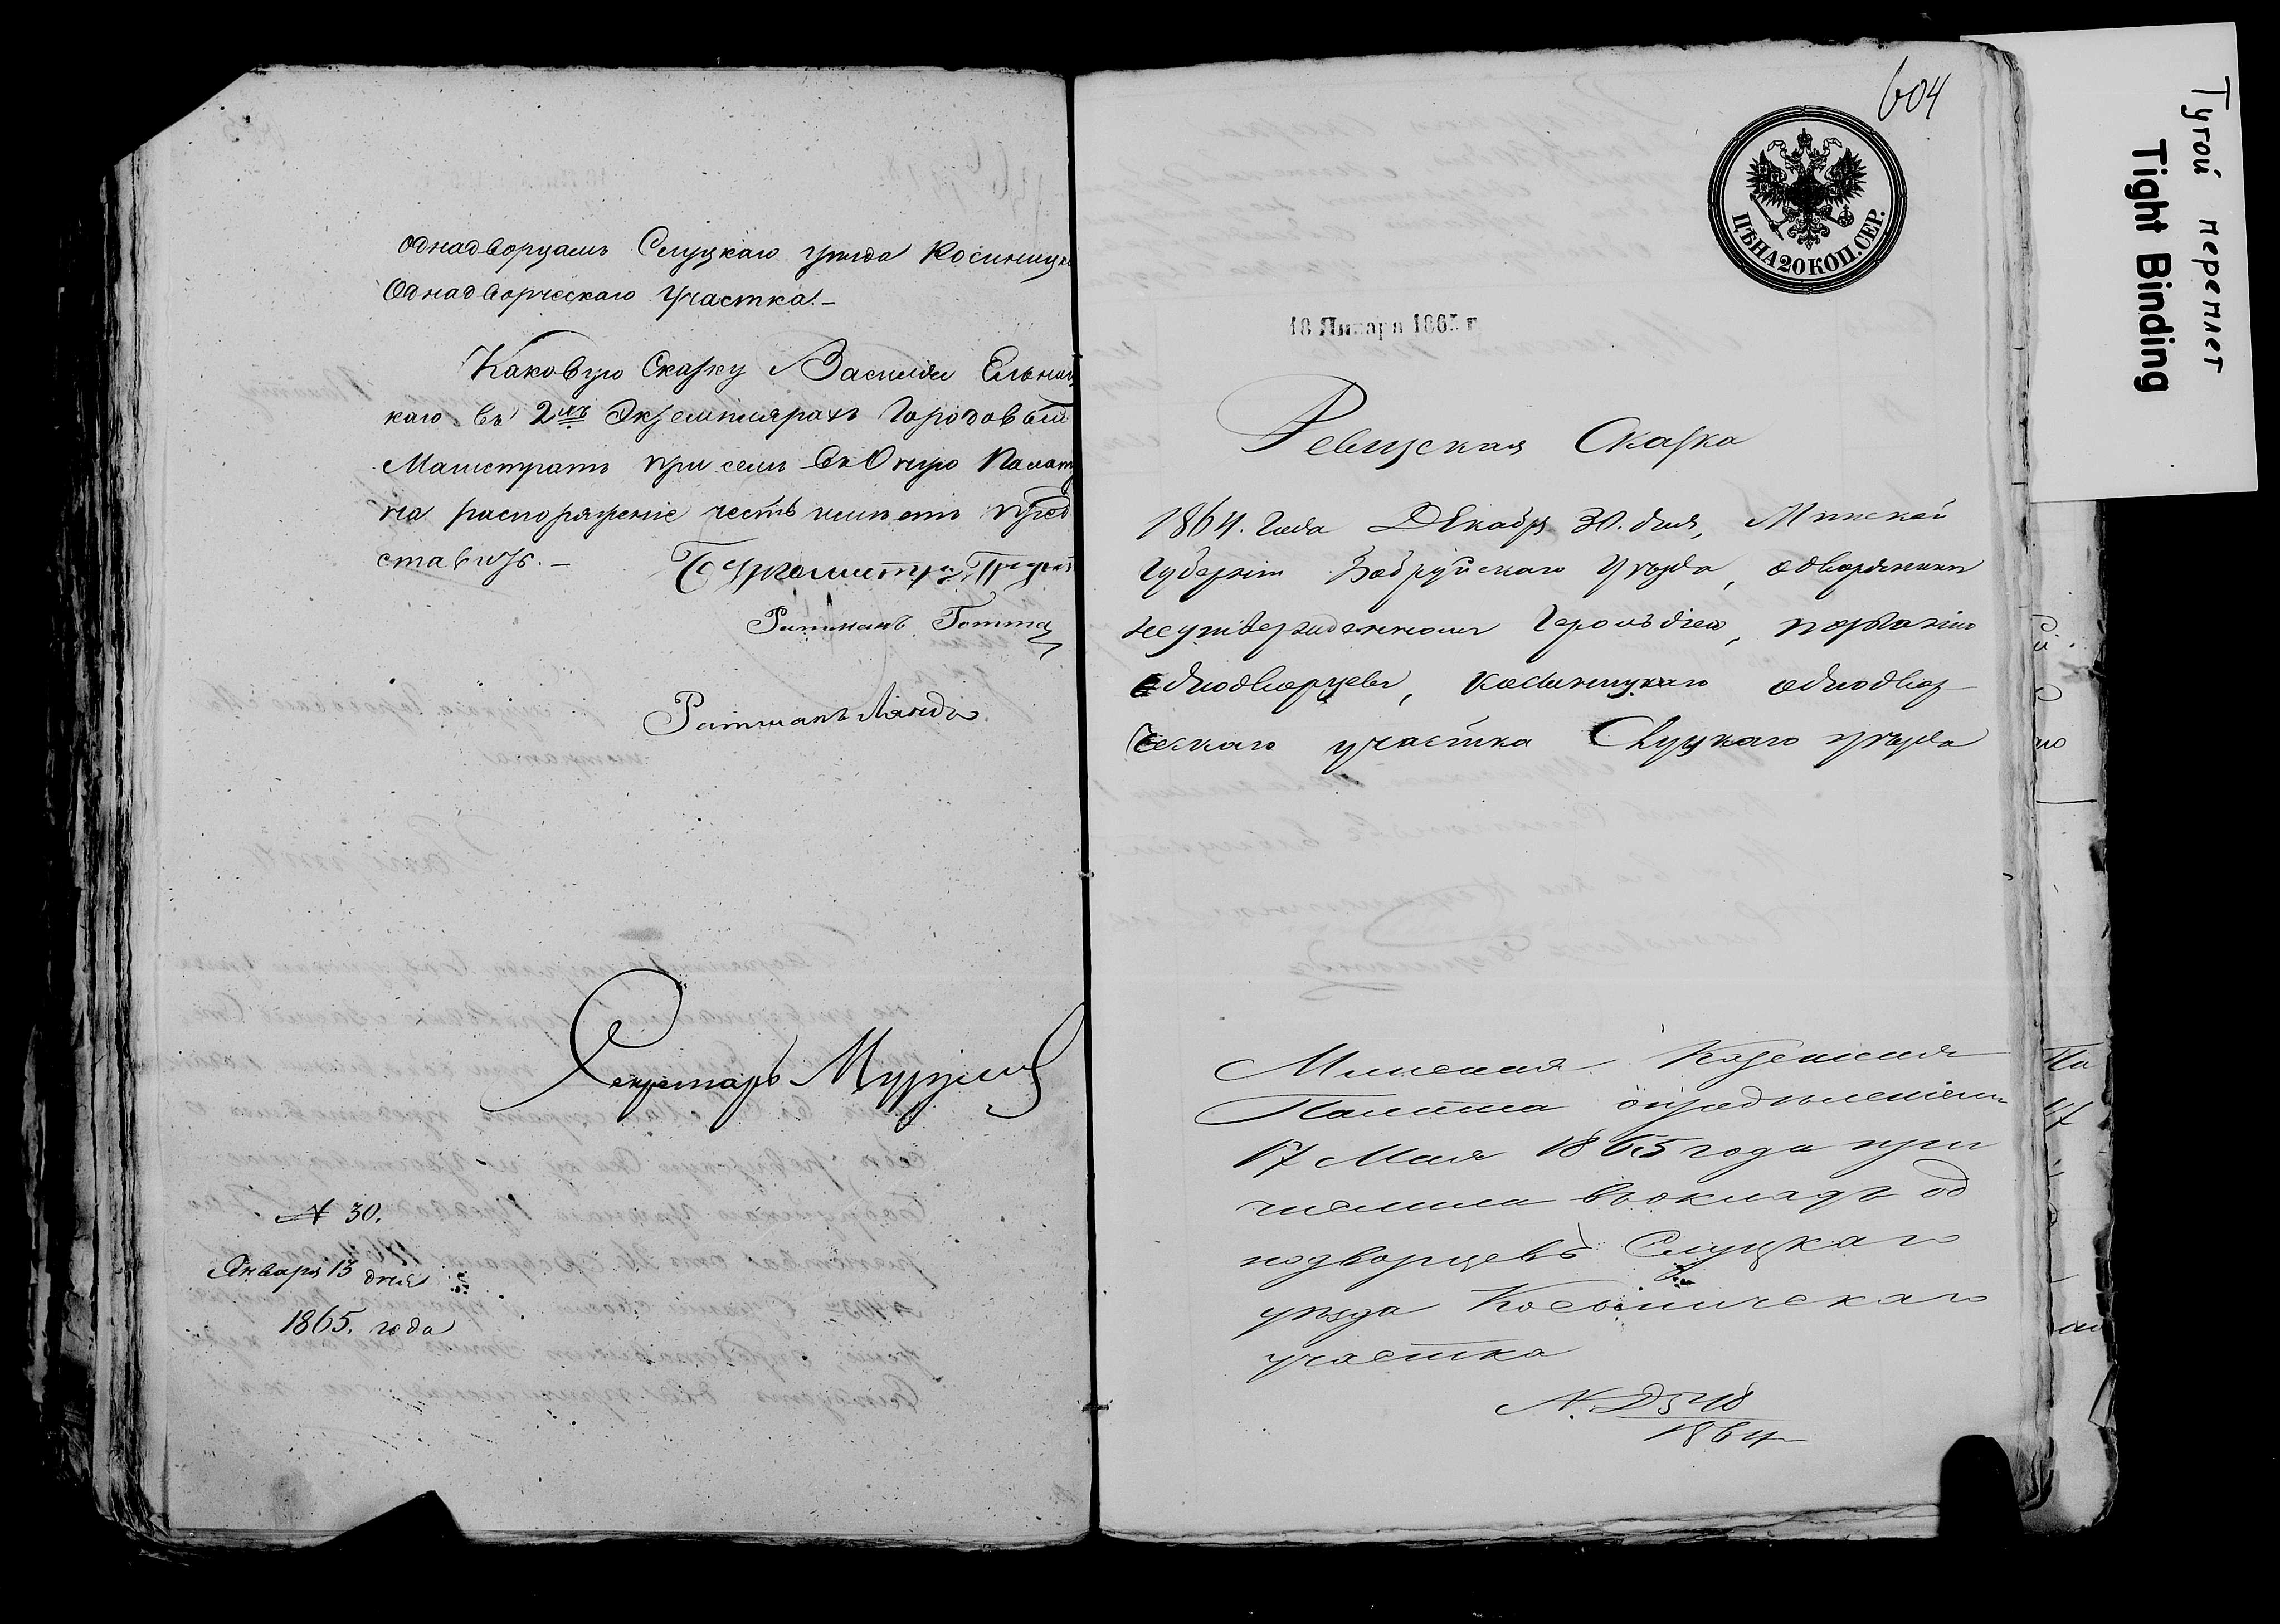 однадворцамъ Слуцкаго уѣзда Косиницка
Однадворческаго Участка.-
Каковую Сказку Василія Ельниц
каго въ 2хъ Экземплярахъ Городовый
Магистратъ при семъ въ Оную Палат
на распоряженіе честь имѣетъ пред
ставить.-
Бургомистръ
Ратманъ
Ратманъ Ланда
Секретарь
№ 30.
Января 13 дня
1865. года
604
ЦѢНА 20 КОП. СЕР.
18 Января 1865 г
Ревизская Сказка
1864. Года Декабря 30. дня, Минской
Губерніи Бобруйскаго Уѣзда, о дворянинѣ
неутвержденномъ Герольдіею,
однодворцевъ, Касиницкаго однодвор-
ческаго участка Слуцкаго уѣзда
Минская Казенная
Палата опредѣленіемъ
17 Мая 1865 года при
числила въ окладъ од
нодворцевъ Слуцкаго
уѣзда Косиничскаго
участка
1864
Тугой переплет
Tight Binding